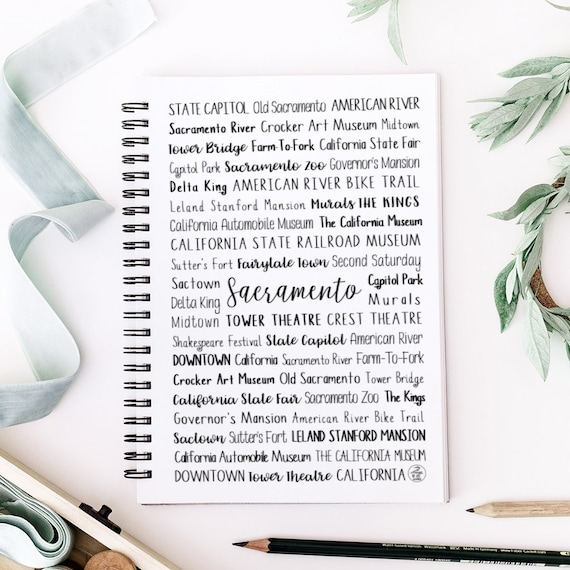 STATE CAPITOL Old Sacramento AMERICAN RIVER
Sacramento River Crocker Art Museum Midtown
Tower Bridge Farm-To-Fork California State Fair
Capitol Park Sacramento Zoo Governor's Mansion
Delta King AMERICAN RIVER BIKE TRAIL
Leland Stanford Mansion Murals THE KINGS
California Automobile Museum The California Museum
CALIFORNIA STATE RAILROAD MUSEUM
Sutter's Fort Fairytale Town Second Saturday
Sactown Capitol Park
Sacramento
Delta King Murals
Midtown TOWER THEATRE CREST THEATRE
Shakespeare Festival State Capitol American River
DOWNTOWN California Sacramento River Farm-To-Fork
Crocker Art Museum Old Sacramento Tower Bridge
California State Fair Sacramento Zoo The Kings
Governor's Mansion American River Bike Trail
Sactown Sutter's Fort LELAND STANFORD MANSION
California Automobile Museum THE CALIFORNIA MUSEUM
DOWNTOWN Tower Theatre CALIFORNIA